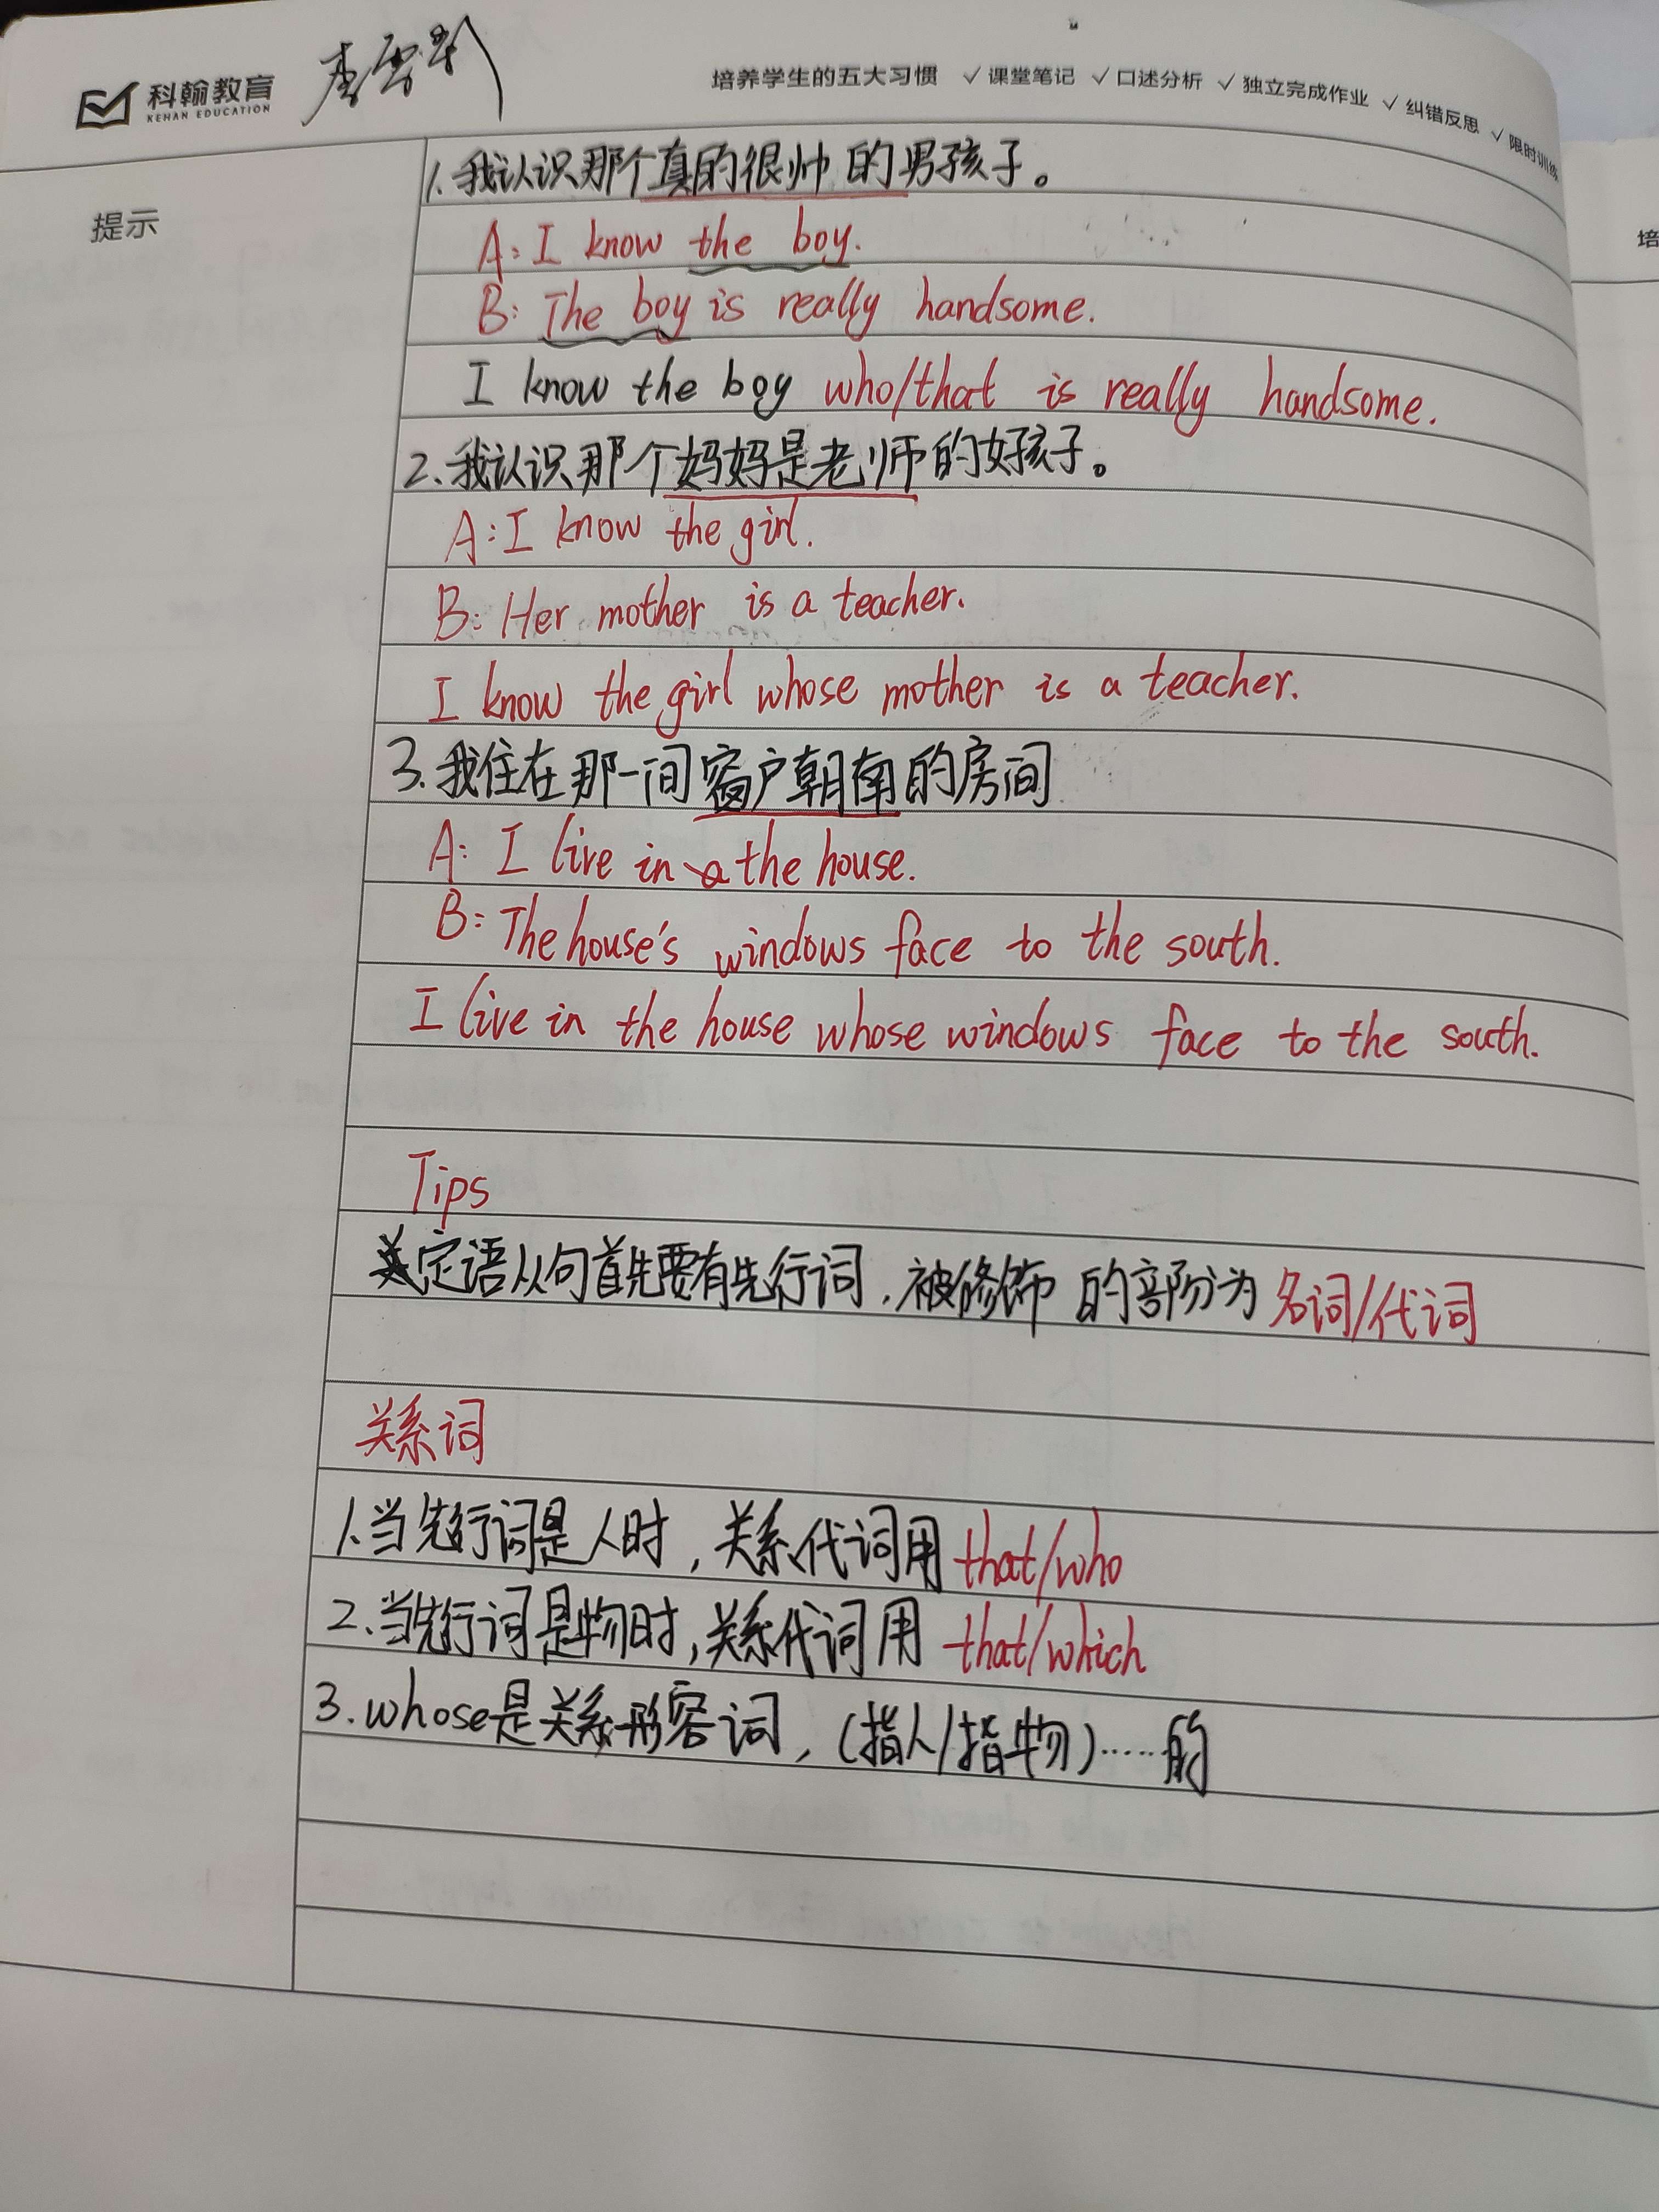 科翰教育
KEHAN EDUCATION
培养学生的五大习惯 ✓课堂笔记 ✓口述分析 ✓独立完成作业 ✓纠错反思 ✓限时训练
提示
培
1.我认识那个真的很帅的男孩子。
A: I know the boy.
B: The boy is really handsome.
I know the boy who/that is really handsome.
2.我认识那个妈妈是老师的好孩子。
A: I know the girl.
B: Her mother is a teacher.
I know the girl whose mother is a teacher.
3.我住在那一间窗户朝南的房间
A: I live in a the house.
B: The house's windows face to the south.
I live in the house whose windows face to the south.
Tips
定语从句首先要有先行词,被修饰的部分为名词/代词
关系词
1.当先行词是人时,关系代词用that/who
2.当先行词是物时,关系代词用that/which
3.whose是关系形容词,(指人/指物)……的